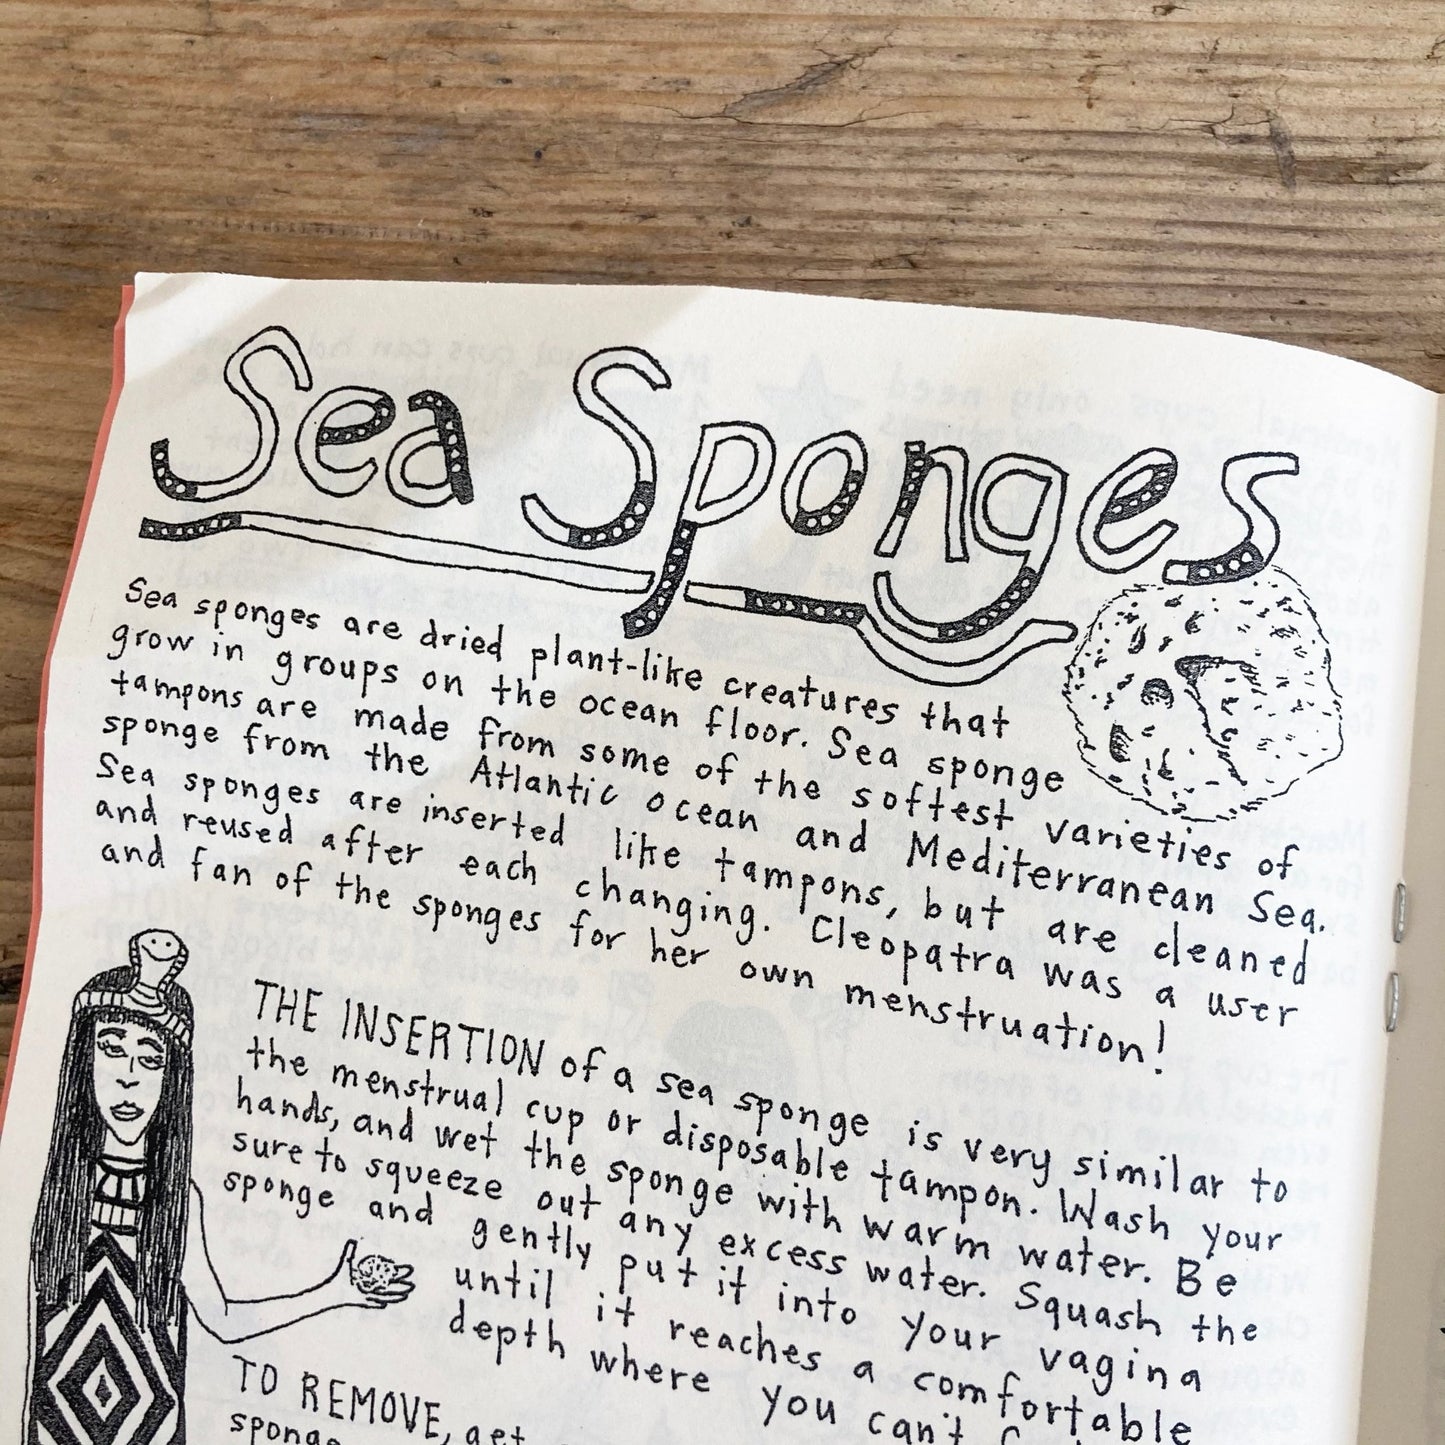 Sea Sponges
Sea sponges are dried plant-like creatures that
grow in groups on the ocean floor. Sea sponge
tampons are made from some of the softest varieties of
sponge from the Atlantic ocean and Mediterranean Sea.
Sea sponges are inserted like tampons, but are cleaned
and reused after each changing. Cleopatra was a user
and fan of the sponges for her own menstruation!
THE INSERTION of a sea sponge is very similar to
the menstrual cup or disposable tampon. Wash your
hands, and wet the sponge with warm water. Be
sure to squeeze out any excess water. Squash the
sponge and gently put it into your vagina
until it reaches a comfortable
depth where you can't
TO REMOVE, get
sponge